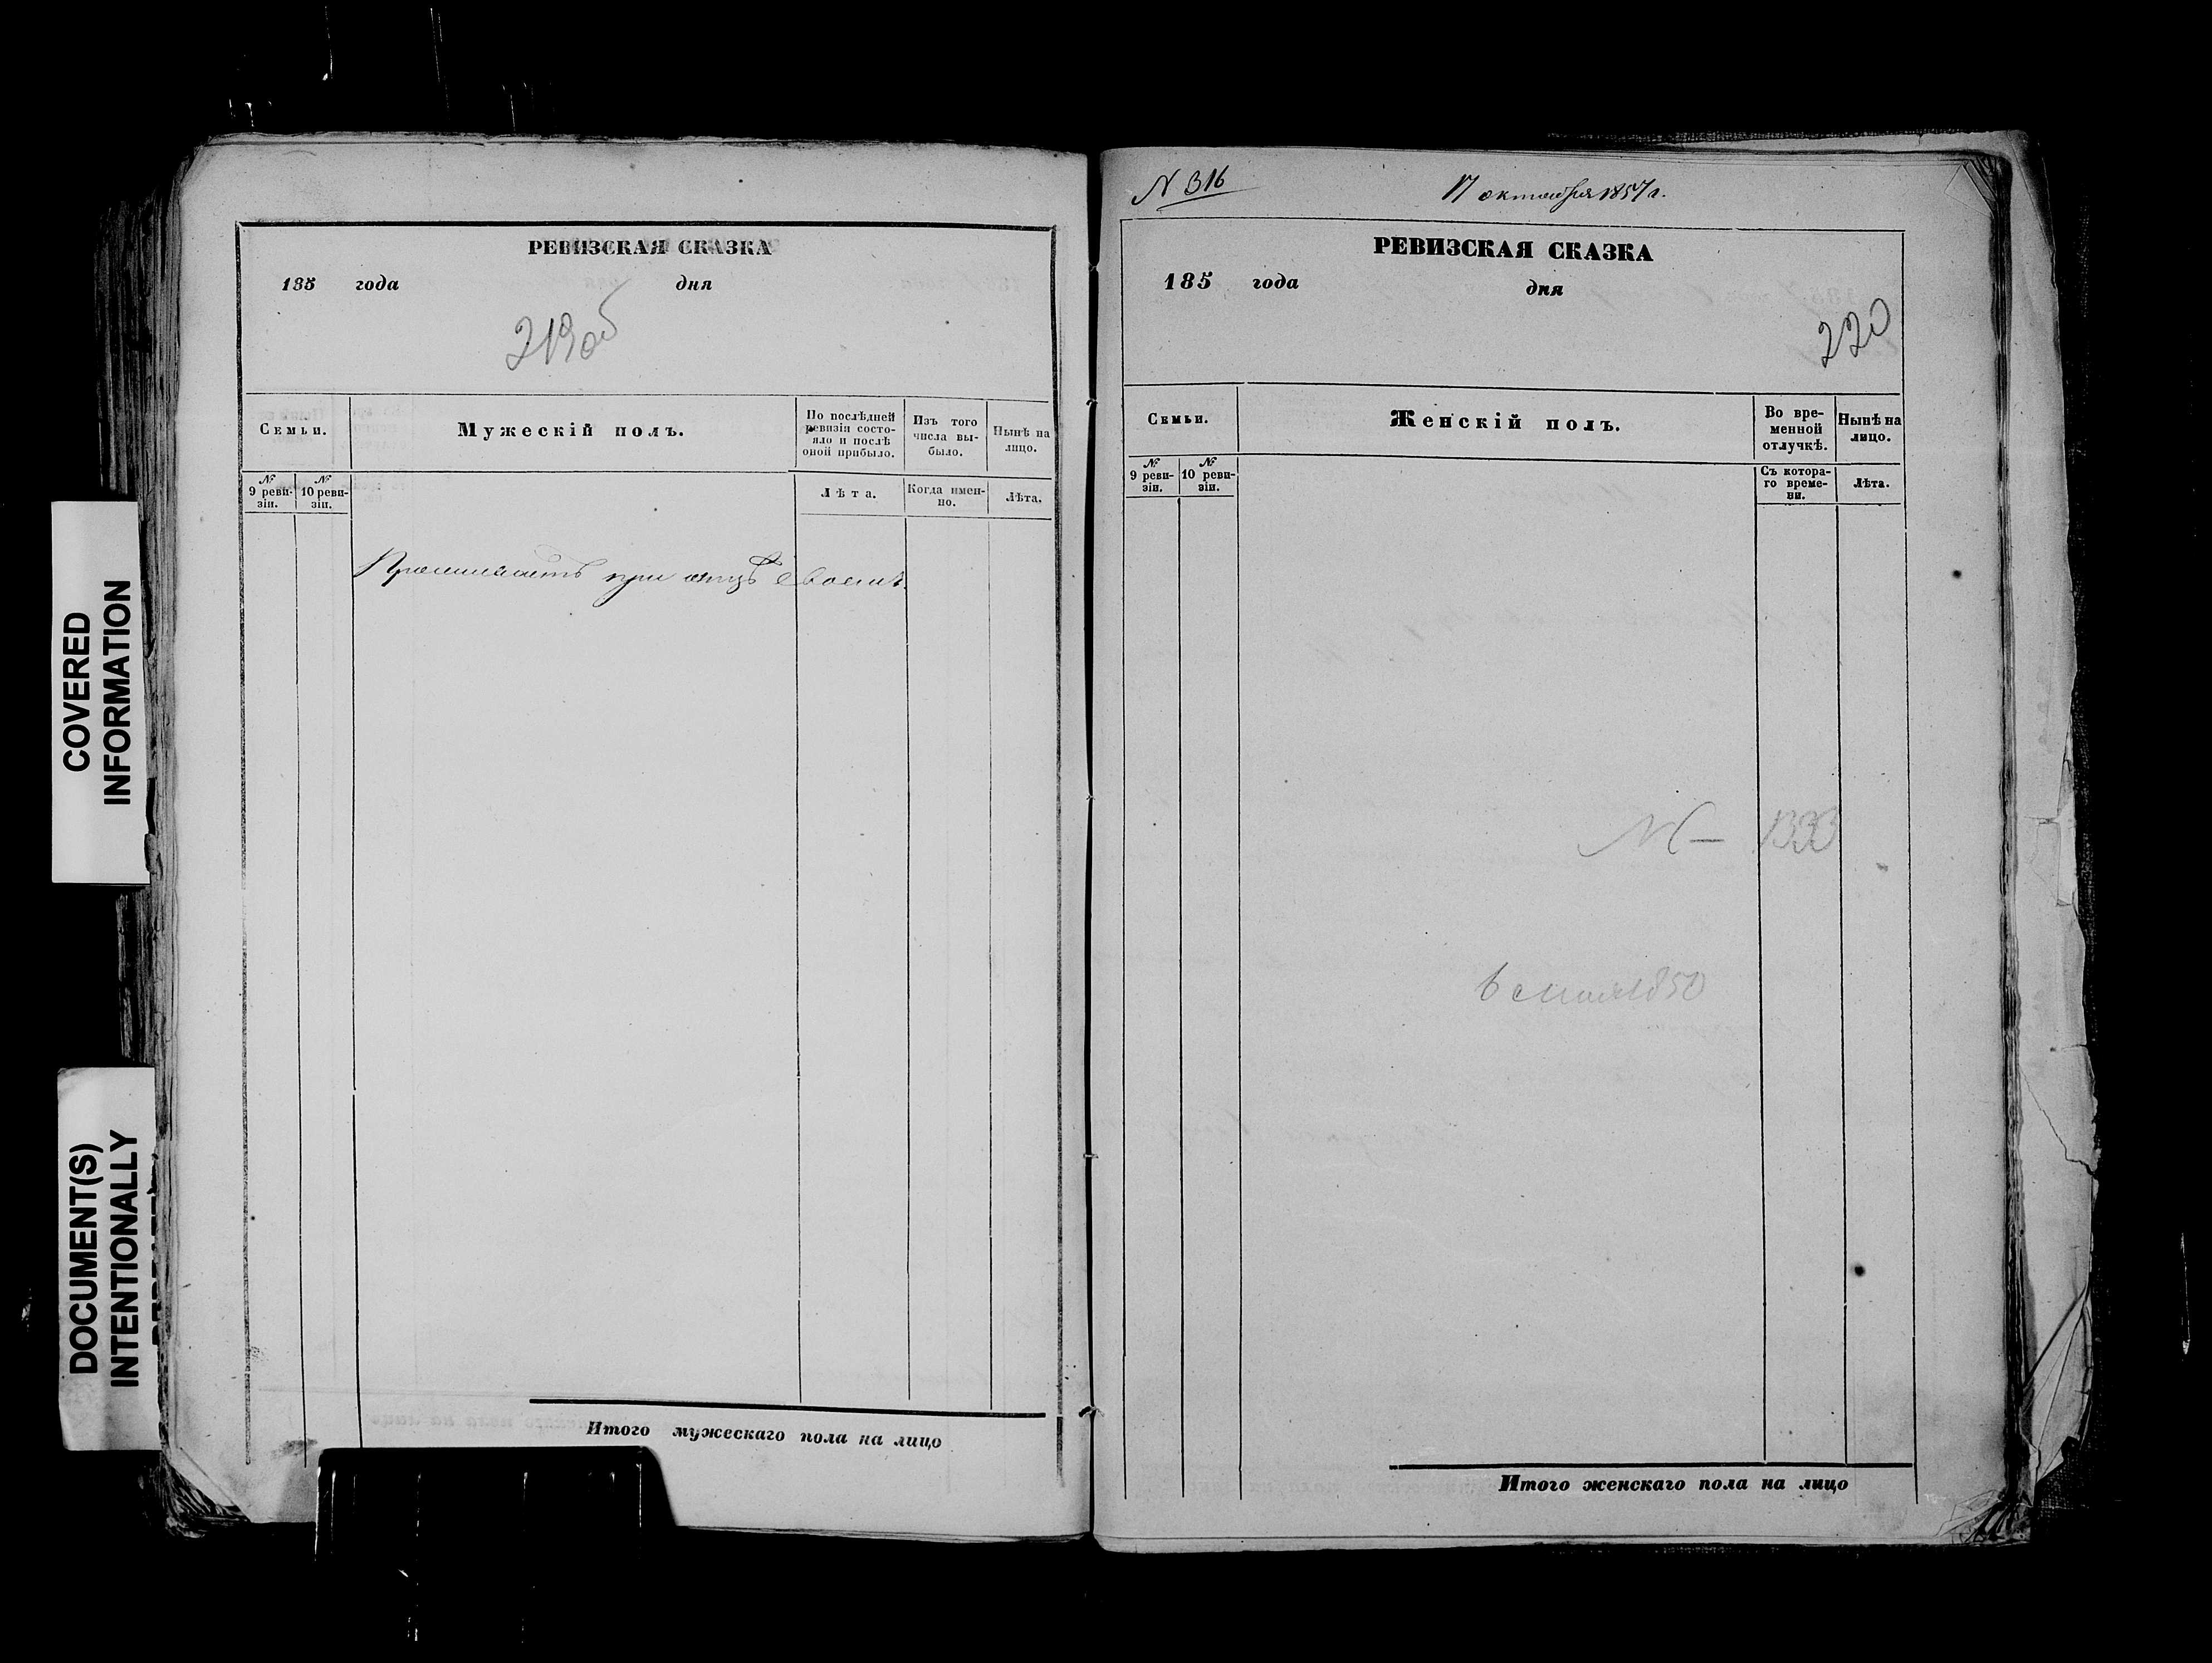 COVERED
INFORMATION
DOCUMENT(S)
INTENTIONALLY
РЕВИЗСКАЯ СКАЗКА
185 года дня
219об
Семьи.
Мужескій полъ.
По послѣдней ревизіи состояло и послѣ оной прибыло.
Изъ того числа выбыло.
Нынѣ на лицо.
№ 9 ревизіи.
№ 10 ревизіи.
Лѣта.
Когда именно.
Лѣта.
при отцѣ своемъ
Итого мужескаго пола на лицо
N 316
17 октября 1857 г.
РЕВИЗСКАЯ СКАЗКА
185 года дня
220
Семьи.
Женскій полъ.
Во временной отлучкѣ.
Нынѣ на лицо.
№ 9 ревизіи.
№ 10 ревизіи.
Съ котораго времени.
Лѣта.
1850
Итого женскаго пола на лицо